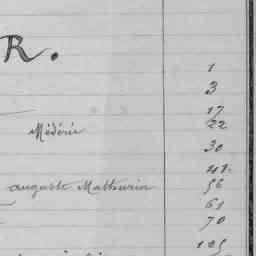 R.
1
3
17
Médéric 22
30
41
auguste Mathurin 56
61
70
125